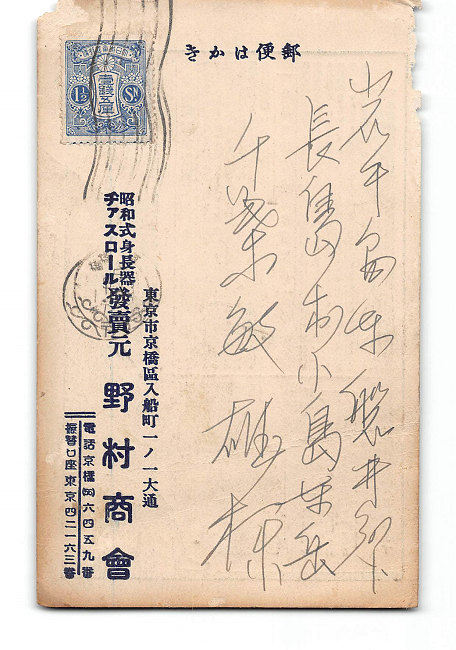 郵便はかき
岩手縣東磐井郡
長島村小島字岳
千葉敏雄様
東京市京橋區入船町一ノ一大通
昭和式身長器
チァスロール
發賣元 野村商會
電話京橋㈣六四五九番
振替口座東京四二一六三番
壹錢五厘
1½ Sn